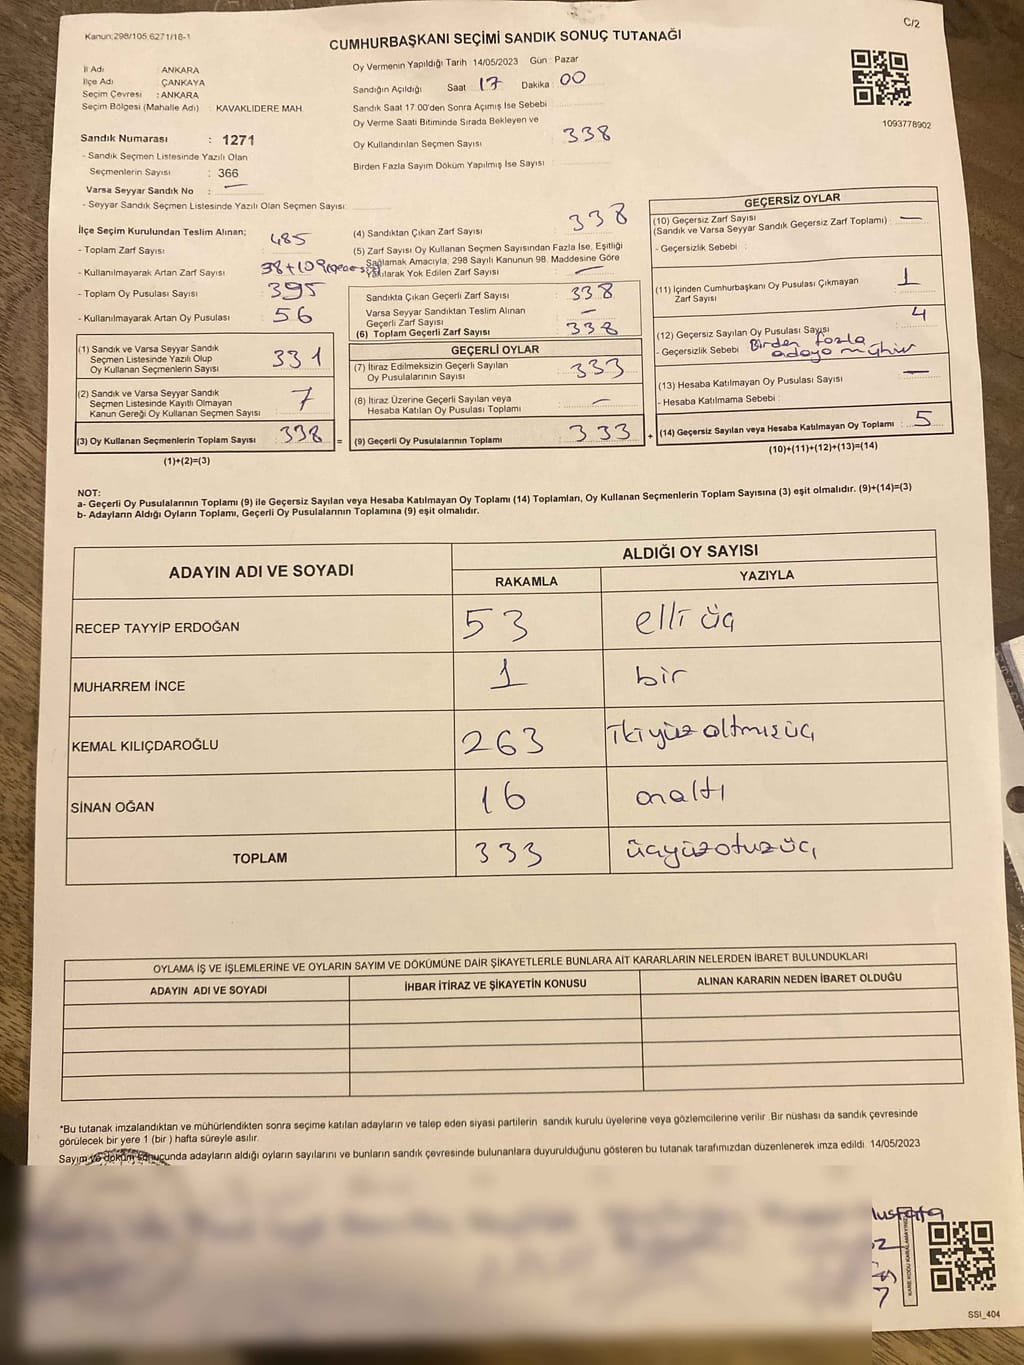 Kanun:298/105,6271/18-1
C/2
CUMHURBAŞKANI SEÇİMİ SANDIK SONUÇ TUTANAĞI
İl Adı : ANKARA
İlçe Adı : ÇANKAYA
Seçim Çevresi : ANKARA
Seçim Bölgesi (Mahalle Adı) : KAVAKLIDERE MAH.
Sandık Numarası : 1271
- Sandık Seçmen Listesinde Yazılı Olan
Seçmenlerin Sayısı : 366
Varsa Seyyar Sandık No : —
- Seyyar Sandık Seçmen Listesinde Yazılı Olan Seçmen Sayısı:
Oy Vermenin Yapıldığı Tarih 14/05/2023 Gün : Pazar
Sandığın Açıldığı Saat 17 Dakika 00
Sandık Saat 17.00'den Sonra Açımış İse Sebebi :
Oy Verme Saati Bitiminde Sırada Bekleyen ve
Oy Kullandırılan Seçmen Sayısı : 338
Birden Fazla Sayım Döküm Yapılmış İse Sayısı :
1093778902
İlçe Seçim Kurulundan Teslim Alınan;
- Toplam Zarf Sayısı : 485
- Kullanılmayarak Artan Zarf Sayısı : 38+109
- Toplam Oy Pusulası Sayısı : 395
- Kullanılmayarak Artan Oy Pusulası : 56
(1) Sandık ve Varsa Seyyar Sandık
Seçmen Listesinde Yazılı Olup
Oy Kullanan Seçmenlerin Sayısı : 331
(2) Sandık ve Varsa Seyyar Sandık
Seçmen Listesinde Kayıtlı Olmayan
Kanun Gereği Oy Kullanan Seçmen Sayısı : 7
(3) Oy Kullanan Seçmenlerin Toplam Sayısı : 338 =
(1)+(2)=(3)
(4) Sandıktan Çıkan Zarf Sayısı : 338
(5) Zarf Sayısı Oy Kullanan Seçmen Sayısından Fazla İse, Eşitliği
Sağlamak Amacıyla, 298 Sayılı Kanunun 98. Maddesine Göre
Yakılarak Yok Edilen Zarf Sayısı : —
Sandıkta Çıkan Geçerli Zarf Sayısı : 338
Varsa Seyyar Sandıktan Teslim Alınan
Geçerli Zarf Sayısı : —
(6) Toplam Geçerli Zarf Sayısı : 338
GEÇERLİ OYLAR
(7) İtiraz Edilmeksizin Geçerli Sayılan
Oy Pusulalarının Sayısı : 333
(8) İtiraz Üzerine Geçerli Sayılan veya
Hesaba Katılan Oy Pusulası Toplamı : —
(9) Geçerli Oy Pusulalarının Toplamı : 333 +
GEÇERSİZ OYLAR
(10) Geçersiz Zarf Sayısı : —
(Sandık ve Varsa Seyyar Sandık Geçersiz Zarf Toplamı) :
- Geçersizlik Sebebi :
(11) İçinden Cumhurbaşkanı Oy Pusulası Çıkmayan
Zarf Sayısı : 1
(12) Geçersiz Sayılan Oy Pusulası Sayısı : 4
- Geçersizlik Sebebi Birden fazla
adaya mühür
(13) Hesaba Katılmayan Oy Pusulası Sayısı : —
- Hesaba Katılmama Sebebi :
(14) Geçersiz Sayılan veya Hesaba Katılmayan Oy Toplamı : 5
(10)+(11)+(12)+(13)=(14)
NOT:
a- Geçerli Oy Pusulalarının Toplamı (9) ile Geçersiz Sayılan veya Hesaba Katılmayan Oy Toplamı (14) Toplamları, Oy Kullanan Seçmenlerin Toplam Sayısına (3) eşit olmalıdır. (9)+(14)=(3)
b- Adayların Aldığı Oyların Toplamı, Geçerli Oy Pusulalarının Toplamına (9) eşit olmalıdır.
ADAYIN ADI VE SOYADI
ALDIĞI OY SAYISI
RAKAMLA YAZIYLA
RECEP TAYYİP ERDOĞAN 53 elli üç
MUHARREM İNCE 1 bir
KEMAL KILIÇDAROĞLU 263 ikiyüz altmışüç
SİNAN OĞAN 16 onaltı
TOPLAM 333 üçyüzotuzüç
OYLAMA İŞ VE İŞLEMLERİNE VE OYLARIN SAYIM VE DÖKÜMÜNE DAİR ŞİKAYETLERLE BUNLARA AİT KARARLARIN NELERDEN İBARET BULUNDUKLARI
ADAYIN ADI VE SOYADI İHBAR İTİRAZ VE ŞİKAYETİN KONUSU ALINAN KARARIN NEDEN İBARET OLDUĞU
*Bu tutanak imzalandıktan ve mühürlendikten sonra seçime katılan adayların ve talep eden siyasi partilerin sandık kurulu üyelerine veya gözlemcilerine verilir .Bir nüshası da sandık çevresinde
görülecek bir yere 1 (bir ) hafta süreyle asılır.
Sayım ve döküm sonucunda adayların aldığı oyların sayılarını ve bunların sandık çevresinde bulunanlara duyurulduğunu gösteren bu tutanak tarafımızdan düzenlenerek imza edildi. 14/05/2023
KARE KODU KARALAMAYINIZ
SSI_404